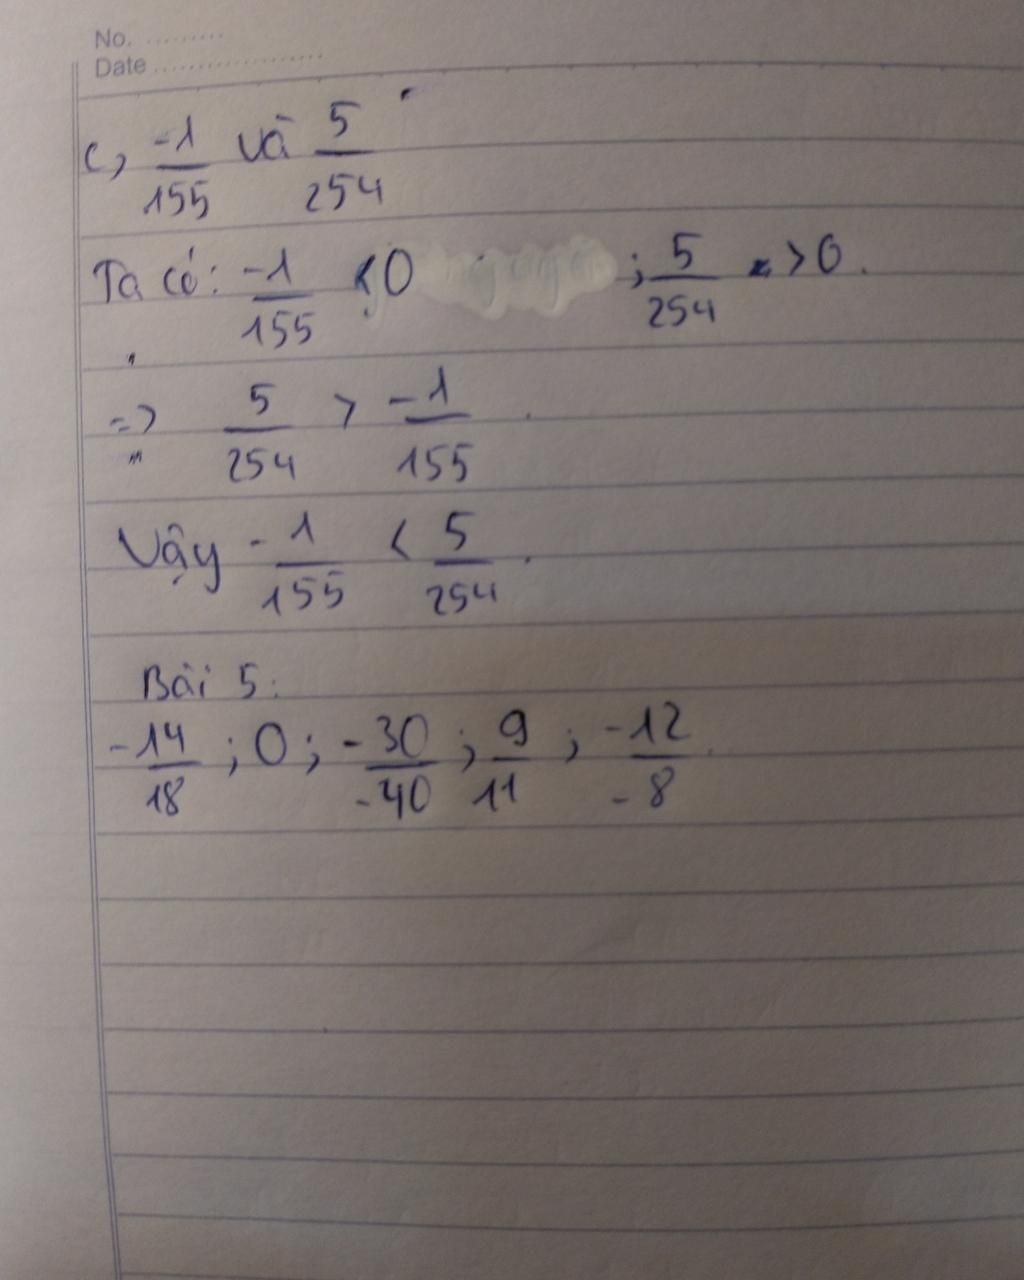 No. .........
Date ...................
c, -1/155 và 5/254
Ta có: -1/155 < 0 ; 5/254 > 0.
=> 5/254 > -1/155.
Vậy -1/155 < 5/254.
Bài 5:
-14/18 ; 0 ; -30/-40 ; 9/11 ; -12/-8.